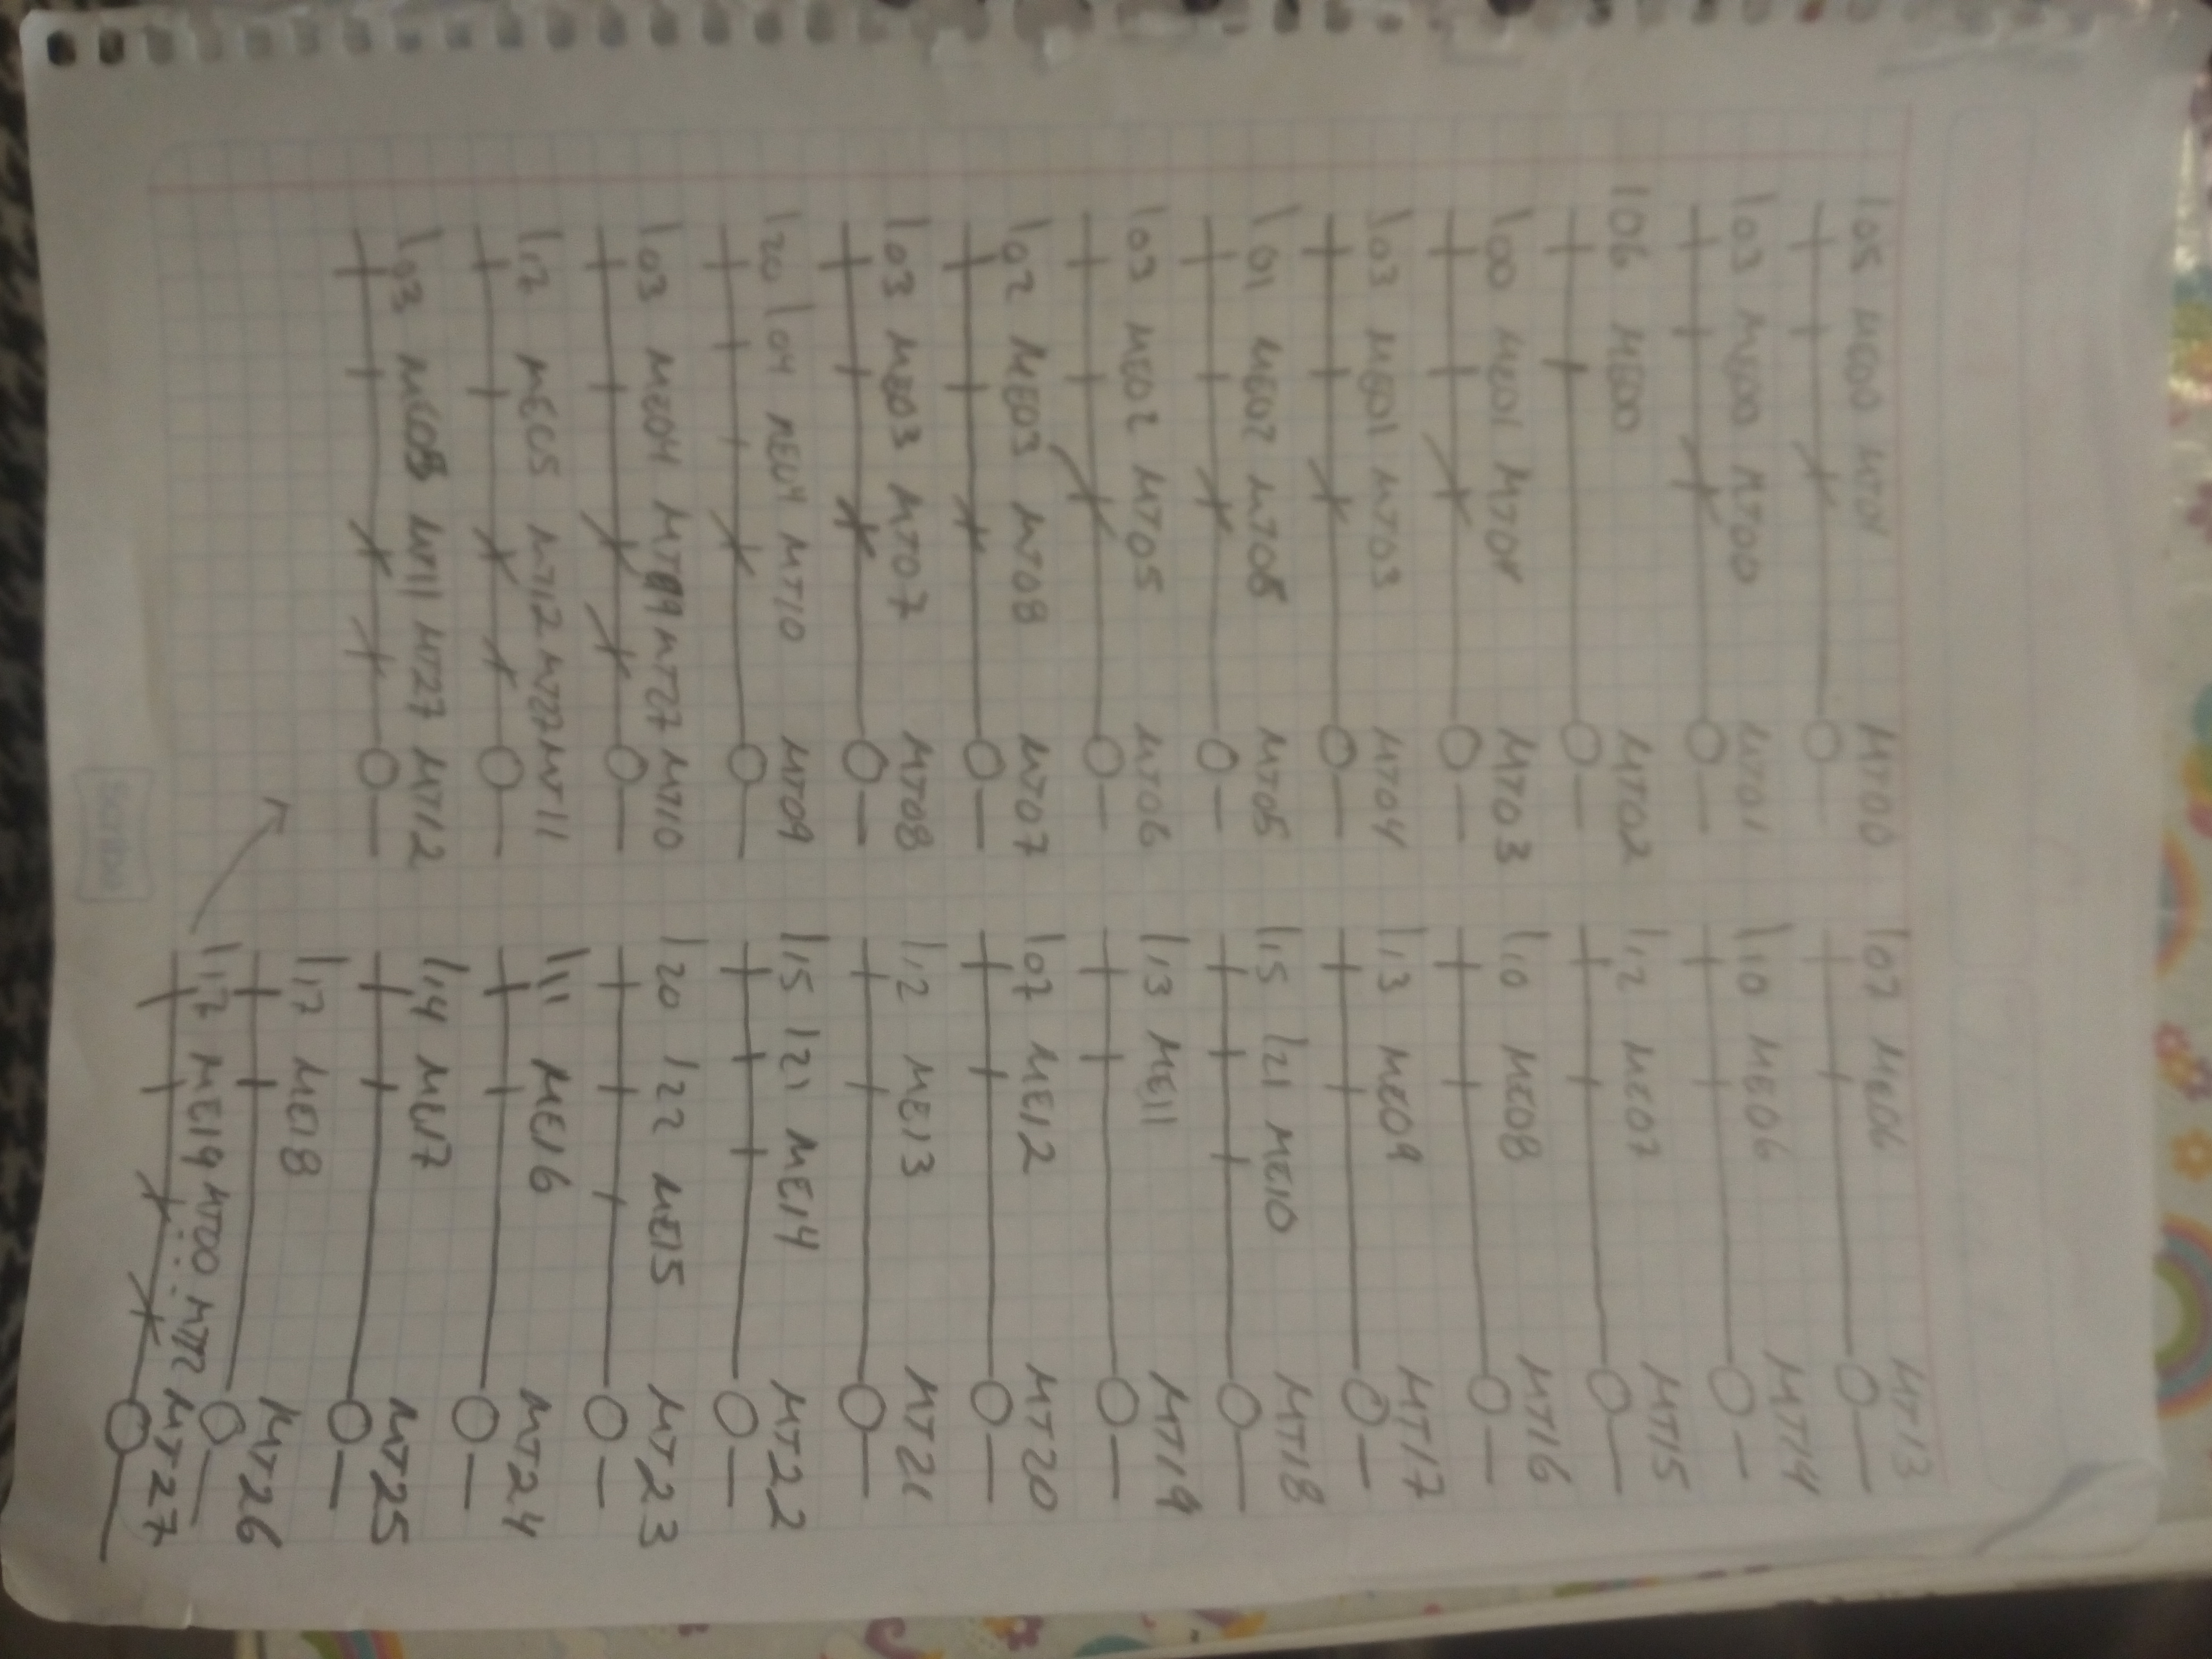 I05 ME00 MT01 MT00
I03 ME00 MT00 MT01
I06 ME00 MT02
I00 ME01 MT04 MT03
I03 ME01 MT03 MT04
I01 ME02 MT06 MT05
I03 ME02 MT05 MT06
I02 ME03 MT08 MT07
I03 ME03 MT07 MT08
I20 I04 ME04 MT10 MT09
I03 ME04 MT09 MT27 MT10
I12 ME05 MT12 MT27 MT11
I03 ME05 MT11 MT27 MT12
I07 ME06 MT13
I10 ME06 MT14
I12 ME07 MT15
I10 ME08 MT16
I13 ME09 MT17
I15 I21 ME10 MT18
I13 ME11 MT19
I07 ME12 MT20
I12 ME13 MT21
I15 I21 ME14 MT22
I20 I22 ME15 MT23
I11 ME16 MT24
I14 ME17 MT25
I17 ME18 MT26
I17 ME19 MT00 MT12 MT27
Scribe